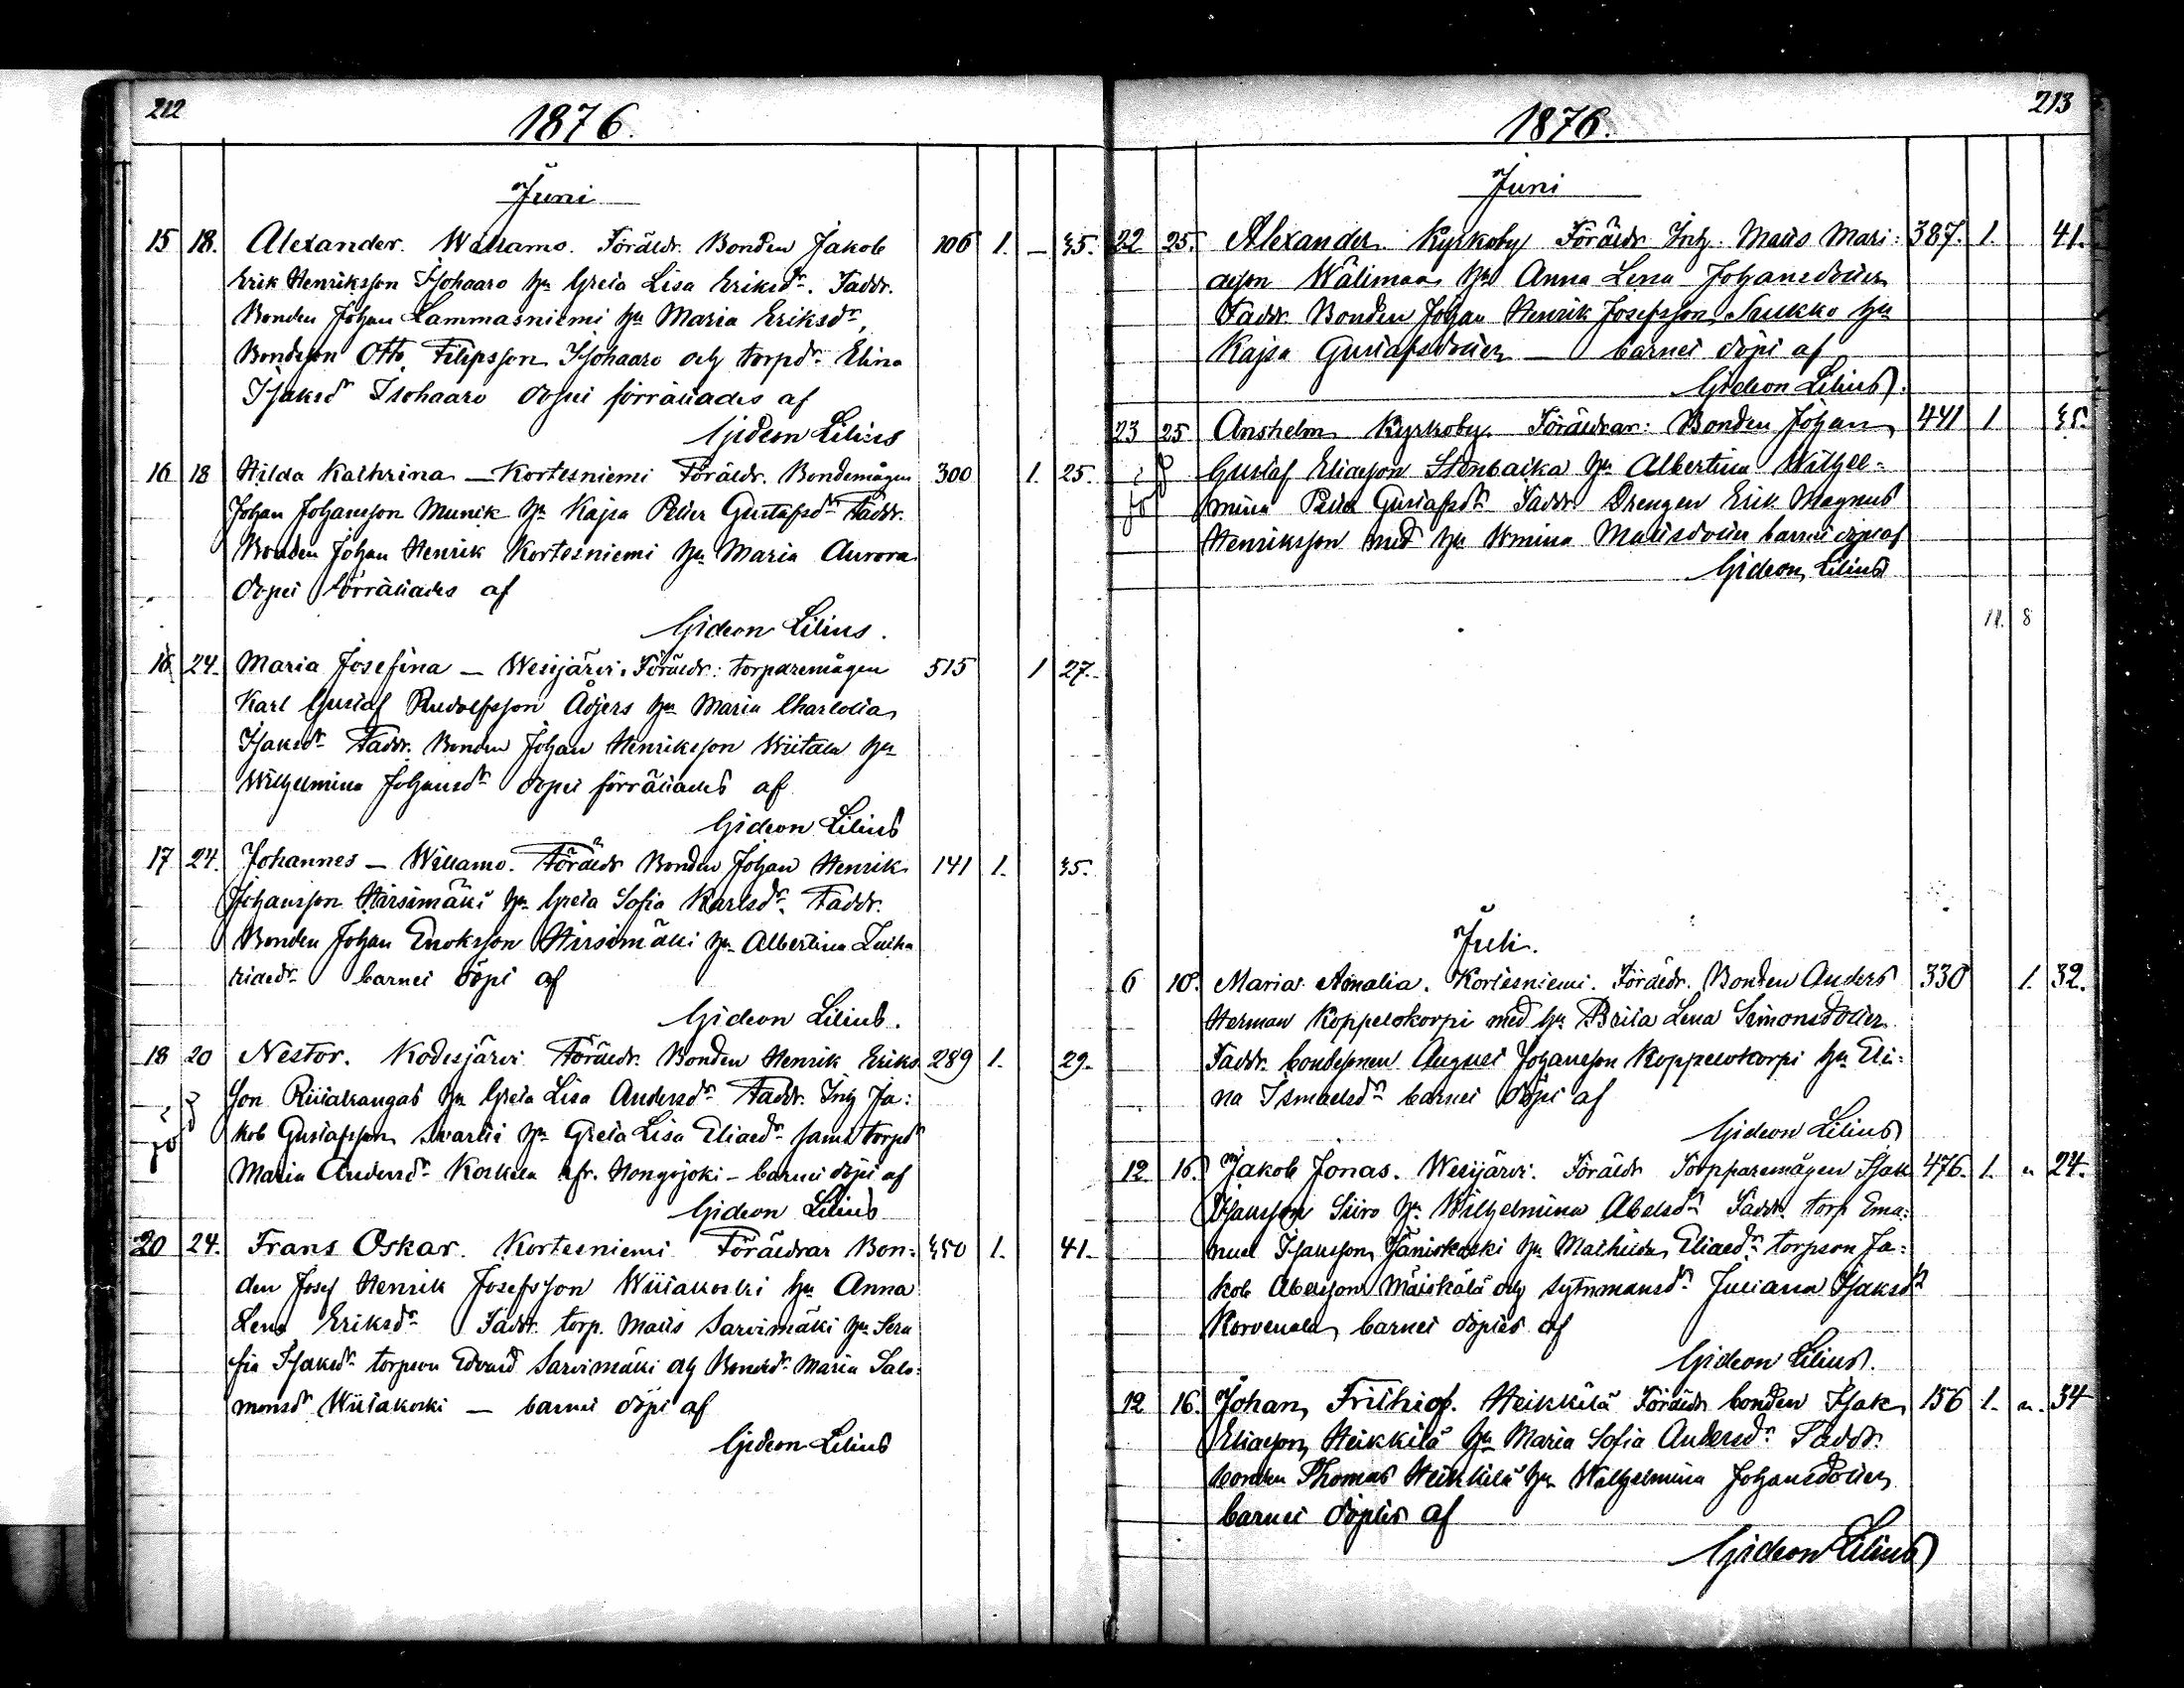 212
1876.
Juni
15 18. Alexander. Wallamo. Föräldr. Bonden Jakob 106 1. — 35.
Erik Henriksson Isohaaro hu Greta Lisa Eriksdr. Faddr.
Bonden Johan Lammasniemi hu Maria Eriksdr,
Bondeson Otto Filipsson Isohaaro och torpdr. Elina
Isaksd Isohaaro dopet förrättades af
Gideon Lilius
16 18 Hilda Kathrina — Kortesniemi Föräldr. Bondemågen 300 1. 25.
Johan Johansson Munik hu Kajsa Petter Gustafsdr Faddr.
Bonden Johan Henrik Kortesniemi hu Maria Aurora
dopet förrättades af
Gideon Lilius.
16 24. Maria Josefina — Wesijärvi. Föräldr: torparemågen 515 1 27.
Karl Gustaf Rudolfsson Ådjers hu Maria Charlotta
Isaksdr Faddr. Bonden Johan Henriksson Wiitala hu
Wilhelmina Johansdr dopet förrättades af
Gideon Lilius
17 24. Johannes — Wallamo. Föräldr Bonden Johan Henrik 141 1. 35.
Johansson Hirsimäki hu Greta Sofia Karlsdr. Faddr.
Bonden Johan Enoksson Hirsimäki hu Albertina Zacha
riasdr barnet döpt af
Gideon Lilius.
18 20 Nestor. Kodesjärvi Föräldr. Bonden Henrik Eriks 289 1. 29.
son Riitakangas hu Greta Lisa Andersdr Faddr. Inh Ja:
kob Gustafsson Svartti hu Greta Lisa Eliaedr samt torpdr
Maria Andersdr Koskela fr. Hongojoki — barnet döpt af
Gideon Lilius
20 24. Frans Oskar. Kortesniemi Föräldrar Bon: 350 1. 41.
den Josef Henrik Josefsson Wiitakoski hu Anna
Lena Eriksdr Faddr. torp. Matts Sarvimäki hu Sera
fia Isaksdr torpson Edvard Sarvimäki och Bondedr Maria Salo:
monsdr Wiitakoski — barnet döpt af
Gideon Lilius
213
1876.
Juni
22 25. Alexander Kyrkoby Föräldr Inh. Matts Matt: 387. 1. 41.
aeson Wälimaa hu Anna Lena Johansdotter
Faddr. Bonden Johan Henrik Josefsson Saukko hu
Kajsa Gustafsdotter — barnet döpt af
Gideon Lilius.
23 25 Anshelm Kyrkoby. Föräldrar: Bonden Johan 441 1 35.
Gustaf Eliaeson Stenbacka hu Albertina Wilhel-
mina Petter Gustafsdr Faddr Drengen Erik Magnus
Henriksson med hu Wmina Mattsdotter barnet döpt af
Gideon Lilius
11. 8
Juli.
6 10. Maria Amalia. Kortesniemi. Föräldr. Bonden Anders 330 1. 32.
Herman Koppelokorpi med hu Brita Lena Simonsdotter.
Faddr. bondesonen August Johansson Koppelokorpi hu Eli:
na Ismaelsdr barnet döpt af
Gideon Lilius
12 16. Jakob Jonas. Wesijärvi. Föräldr Torpparemågen Isak 476. 1. " 24.
Isaksson Siiro hu Wilhelmina Abelsdr Faddr. torp Ema:
nuel Isaksson Jäniskoski hu Mathilda Eliaedr torpson Ja:
kob Abelsson Mäiskälä och sytnmansdr Juliana Isaksdr
Korvenala barnet döptes af
Gideon Lilius.
12 16. Johan Frithiof. Heikkilä Föräldr bonden Isak 156 1. " 34
Eliaeson Heikkilä hu Maria Sofia Andersdr Faddr.
bonden Thomas Heikkilä hu Wilhelmina Johansdotter
barnet döptes af
Gideon Lilius